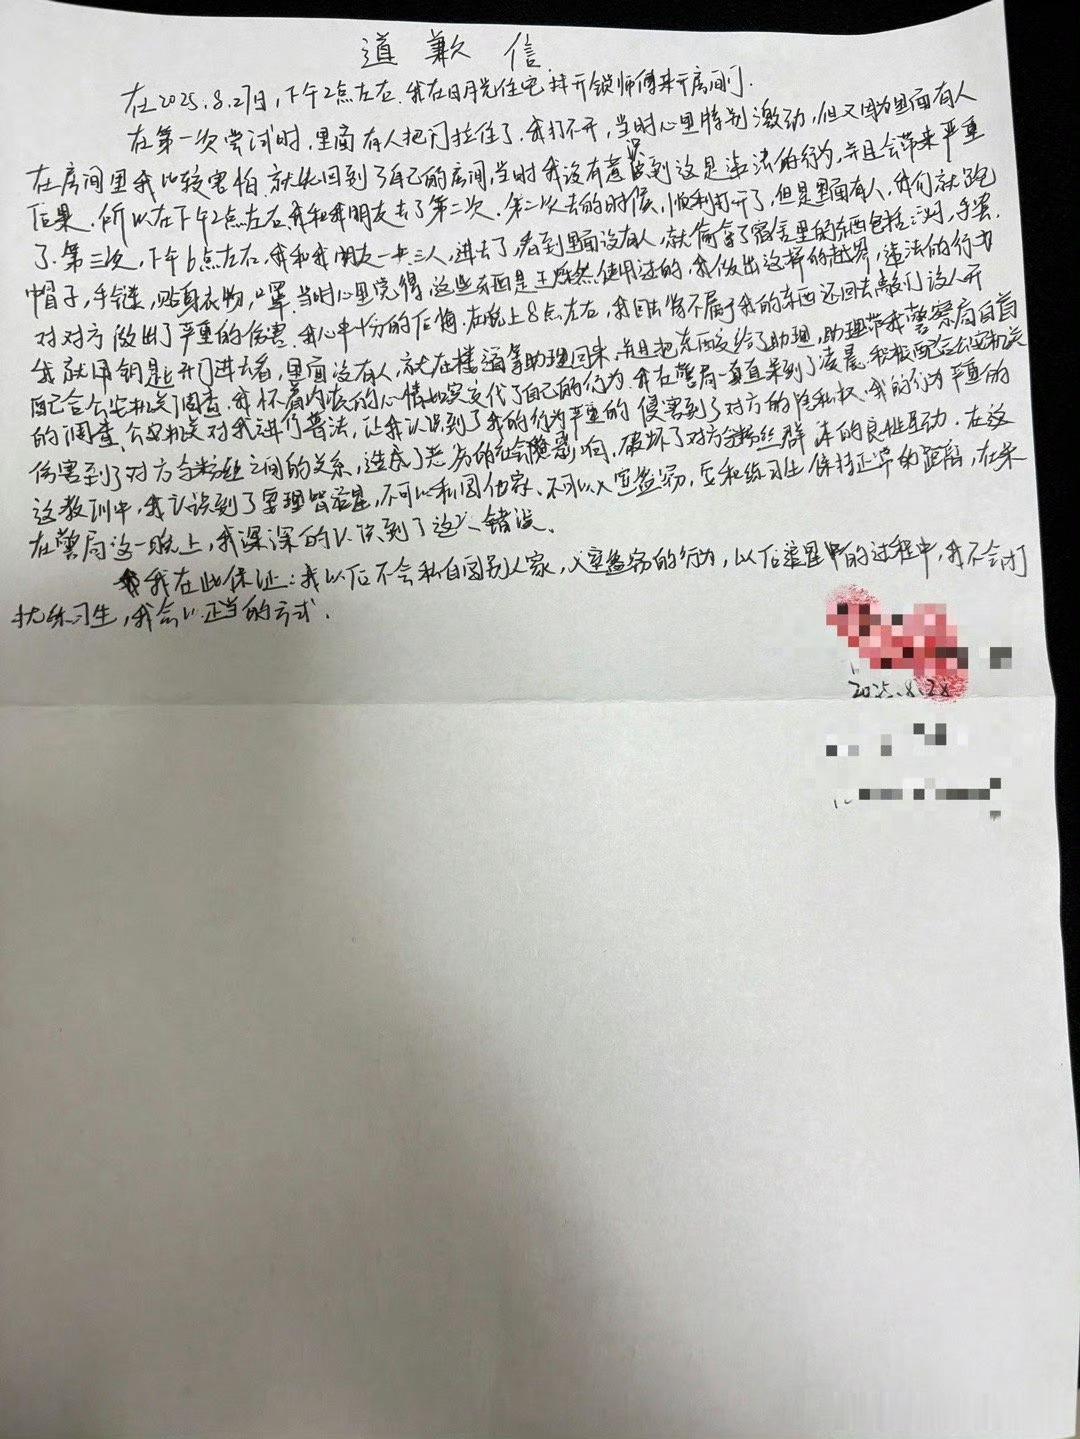 道歉信
在2025.8.27日,下午2点左右.我在日月光住宅,找开锁师傅来开房间门.
在第一次尝试时,里面有人把门拉住了.我打不开,当时心里特别激动,但又因为里面有人
在房间里我比较害怕.就先回到了自己的房间,当时我没有意识到这是违法的行为,并且会带来严重
后果.所以在下午2点左右我和我朋友去了第二次.第二次去的时候,顺利打开了,但是里面有人,我们就跑
了.第三次,下午6点左右,我和我朋友一共三人,进去了,看到里面没有人,就偷拿了宿舍里的东西包括:,手套,
帽子,手链,贴身衣物,口罩.当时心里觉得,这些东西是王烁然使用过的,我做出这样的越界,违法的行为
对对方做出了严重的伤害.我心中十分的后悔.在晚上8点左右,我回去将不属于我的东西还回去敲门没人开
我就用钥匙开门进去看,里面没有人,就在楼道等助理回来,并且把东西交给了助理,助理带我警察局自首
配合公安机关调查.我怀着内疚的心情如实交代了自己的行为.我在警局一直呆到了凌晨.积极配合公安机关
的调查.公安机关对我进行普法,让我认识到了我的行为严重的侵害到了对方的隐私权.我的行为严重的
伤害到了对方与粉丝之间的关系,造成了恶劣的社会影响,破坏了对方与粉丝群体的良性互动.在这
这教训中,我认识到了要理智追星,不可以私闯他家、不可以入室盗窃,要和练习生保持正常的距离,在呆
在警局这一晚上,我深深的认识到了这个错误.
我在此保证:我以后不会私自闯别人家,入室盗窃的行为,以后追星中的过程中,我不会打
扰练习生,我会以正当的方式.
2025.8.28